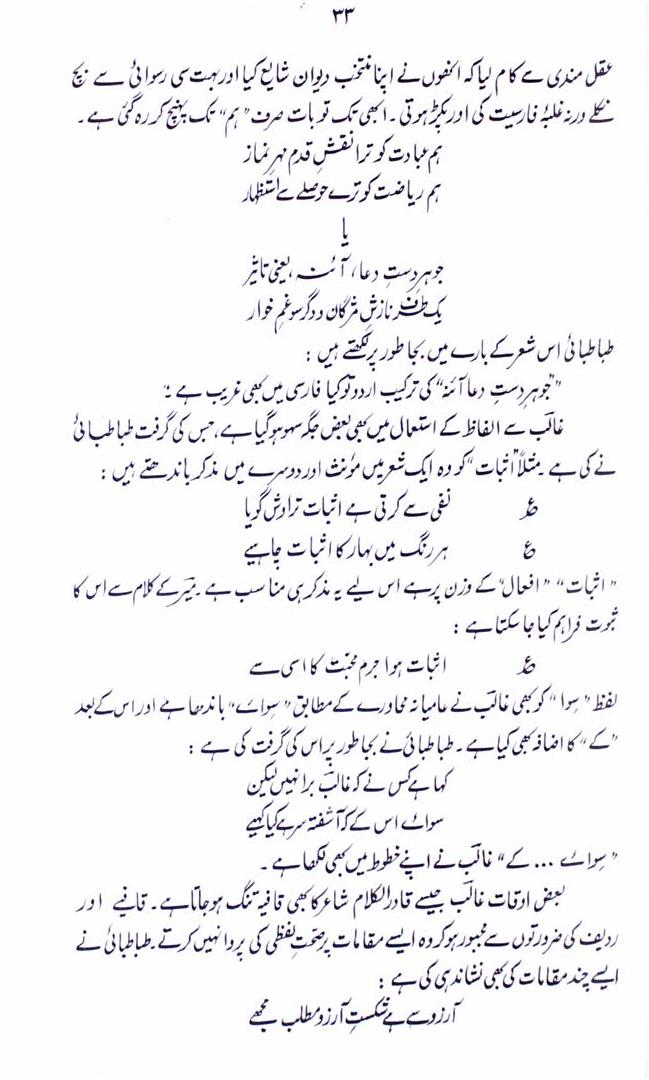 ۳۳
عقل مندی سے کام لیا کہ انھوں نے اپنا منتخب دیوان شایع کیا اور بہت سی رسوائی سے بچ
نکلے ورنہ غلبۂ فارسیت کی اور پکڑ ہوتی ۔ ابھی تک تو بات صرف "ہم" تک پہنچ کر رہ گئی ہے ۔
ہم عبادت کو ترا نقشِ قدم مہرِ نماز
ہم ریاضت کو ترے حوصلے سے استظہار
یا
جوہرِ دستِ دعا، آئنہ یعنی تاثیر
یک طرف نازشِ مژگان و دگر سو غمِ خوار
طباطبائی اس شعر کے بارے میں بجا طور پر لکھتے ہیں :
"جوہرِ دستِ دعا آئنہ" کی ترکیب اردو تو کیا فارسی میں بھی غریب ہے ۔"
غالب سے الفاظ کے استعمال میں بھی بعض جگہ سہو ہو گیا ہے، جس کی گرفت طباطبائی
نے کی ہے ۔ مثلاً "اثبات" کو وہ ایک شعر میں مؤنث اور دوسرے میں مذکر باندھتے ہیں :
ع نفی سے کرتی ہے اثبات تراوش گویا
ع ہر رنگ میں بہار کا اثبات چاہیے
"اثبات" "افعال" کے وزن پر ہے اس لیے یہ مذکر ہی مناسب ہے ۔ میر کے کلام سے اس کا
ثبوت فراہم کیا جا سکتا ہے :
ع اثبات ہوا جرم محبت کا اسی سے
لفظ "سِوا" کو بھی غالب نے عامیانہ محاورے کے مطابق "سِواے" باندھا ہے اور اس کے بعد
"کے" کا اضافہ بھی کیا ہے ۔ طباطبائی نے بجا طور پر اس کی گرفت کی ہے :
کہا ہے کس نے کہ غالب برا نہیں لیکن
سواے اس کے کہ آشفتہ سر ہے کیا کہیے
"سِواے ... کے" غالب نے اپنے خطوط میں بھی لکھا ہے ۔
بعض اوقات غالب جیسے قادر الکلام شاعر کا بھی قافیہ تنگ ہو جاتا ہے ۔ قافیے اور
ردیف کی ضرورتوں سے مجبور ہو کر وہ ایسے مقامات پر صحتِ لفظی کی پروا نہیں کرتے ۔ طباطبائی نے
ایسے چند مقامات کی بھی نشاندہی کی ہے :
آرزو سے ہے شکستِ آرزو مطلب مجھے